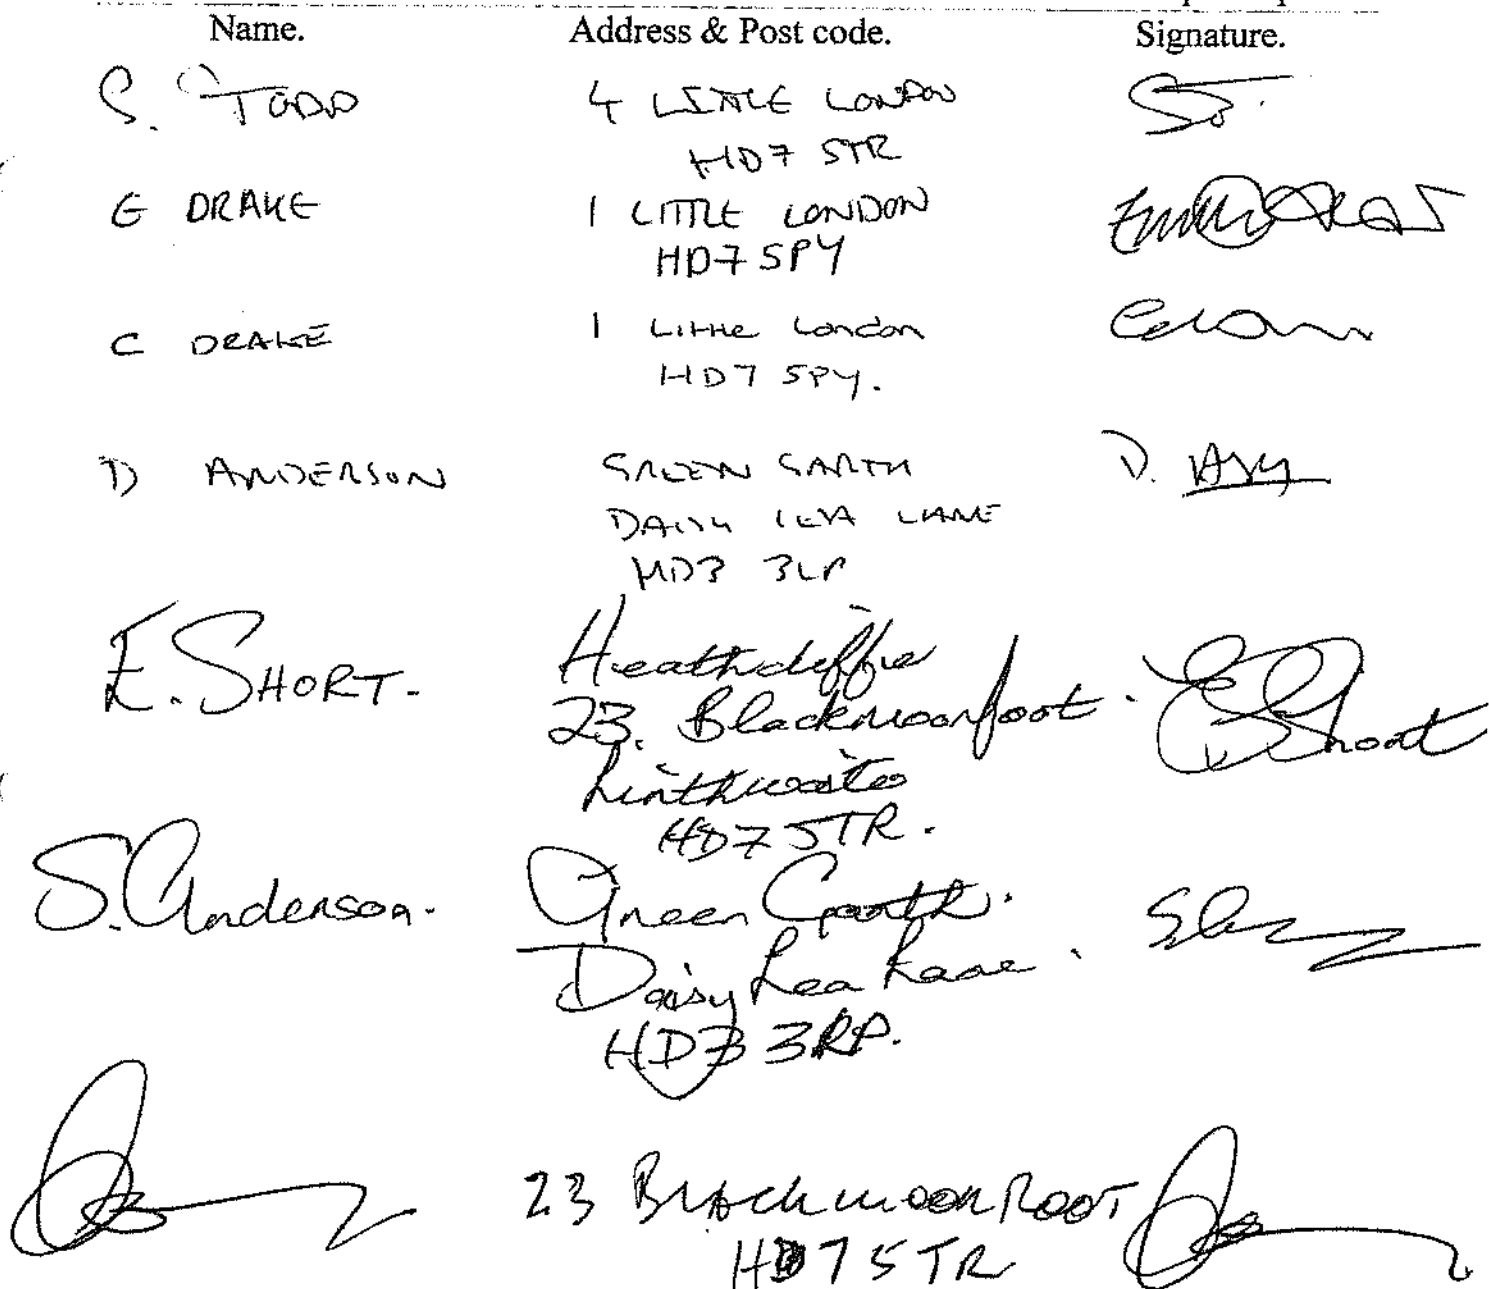 Name. Address & Post code. Signature.
S. TODD 4 LITTLE LONDON
HD7 5TR
E DRAKE 1 LITTLE LONDON
HD7 5PY
C DRAKE 1 Little London
HD7 5PY.
D ANDERSON GREEN GARTH
DAISY LEA LANE
HD3 3LP
E. SHORT. Heathcliffe
23. Blackmoorfoot. E Short
Linthwaite
HD7 5TR.
S. Anderson. Green Garth.
Daisy Lea Lane.
HD3 3RP.
23 Blackmoorfoot
HD7 5TR